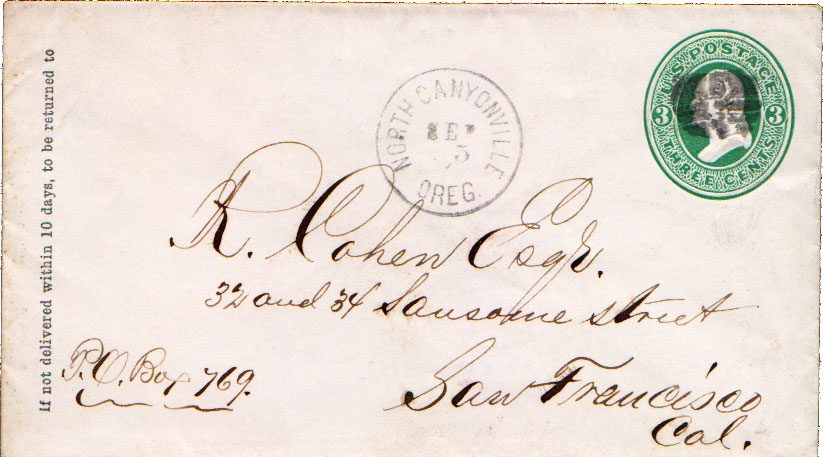 If not delivered within 10 days, to be returned to
U.S. POSTAGE
3 3
THREE CENTS
NORTH CANYONVILLE
SEP
5
OREG.
R. Cohen Esqr.
32 and 34 Sansome street
P.O. Box 769.
San Francisco
Cal.